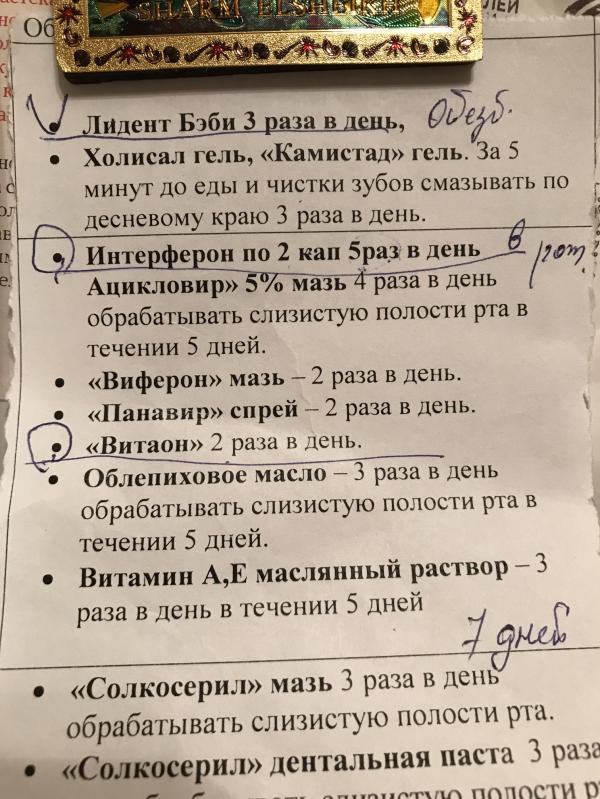 SHARM ELSHEIKH
ЛЕЙ
Об
Лидент Бэби 3 раза в день, Обезб.
Холисал гель, «Камистад» гель. За 5
минут до еды и чистки зубов смазывать по
десневому краю 3 раза в день.
Интерферон по 2 кап 5раз в день в рот.
Ацикловир» 5% мазь 4 раза в день
обрабатывать слизистую полости рта в
течении 5 дней.
«Виферон» мазь – 2 раза в день.
«Панавир» спрей – 2 раза в день.
«Витаон» 2 раза в день.
Облепиховое масло – 3 раза в день
обрабатывать слизистую полости рта в
течении 5 дней.
Витамин А,Е маслянный раствор – 3
раза в день в течении 5 дней
7 дней
«Солкосерил» мазь 3 раза в день
обрабатывать слизистую полости рта.
«Солкосерил» дентальная паста 3 раза
слизистую полости